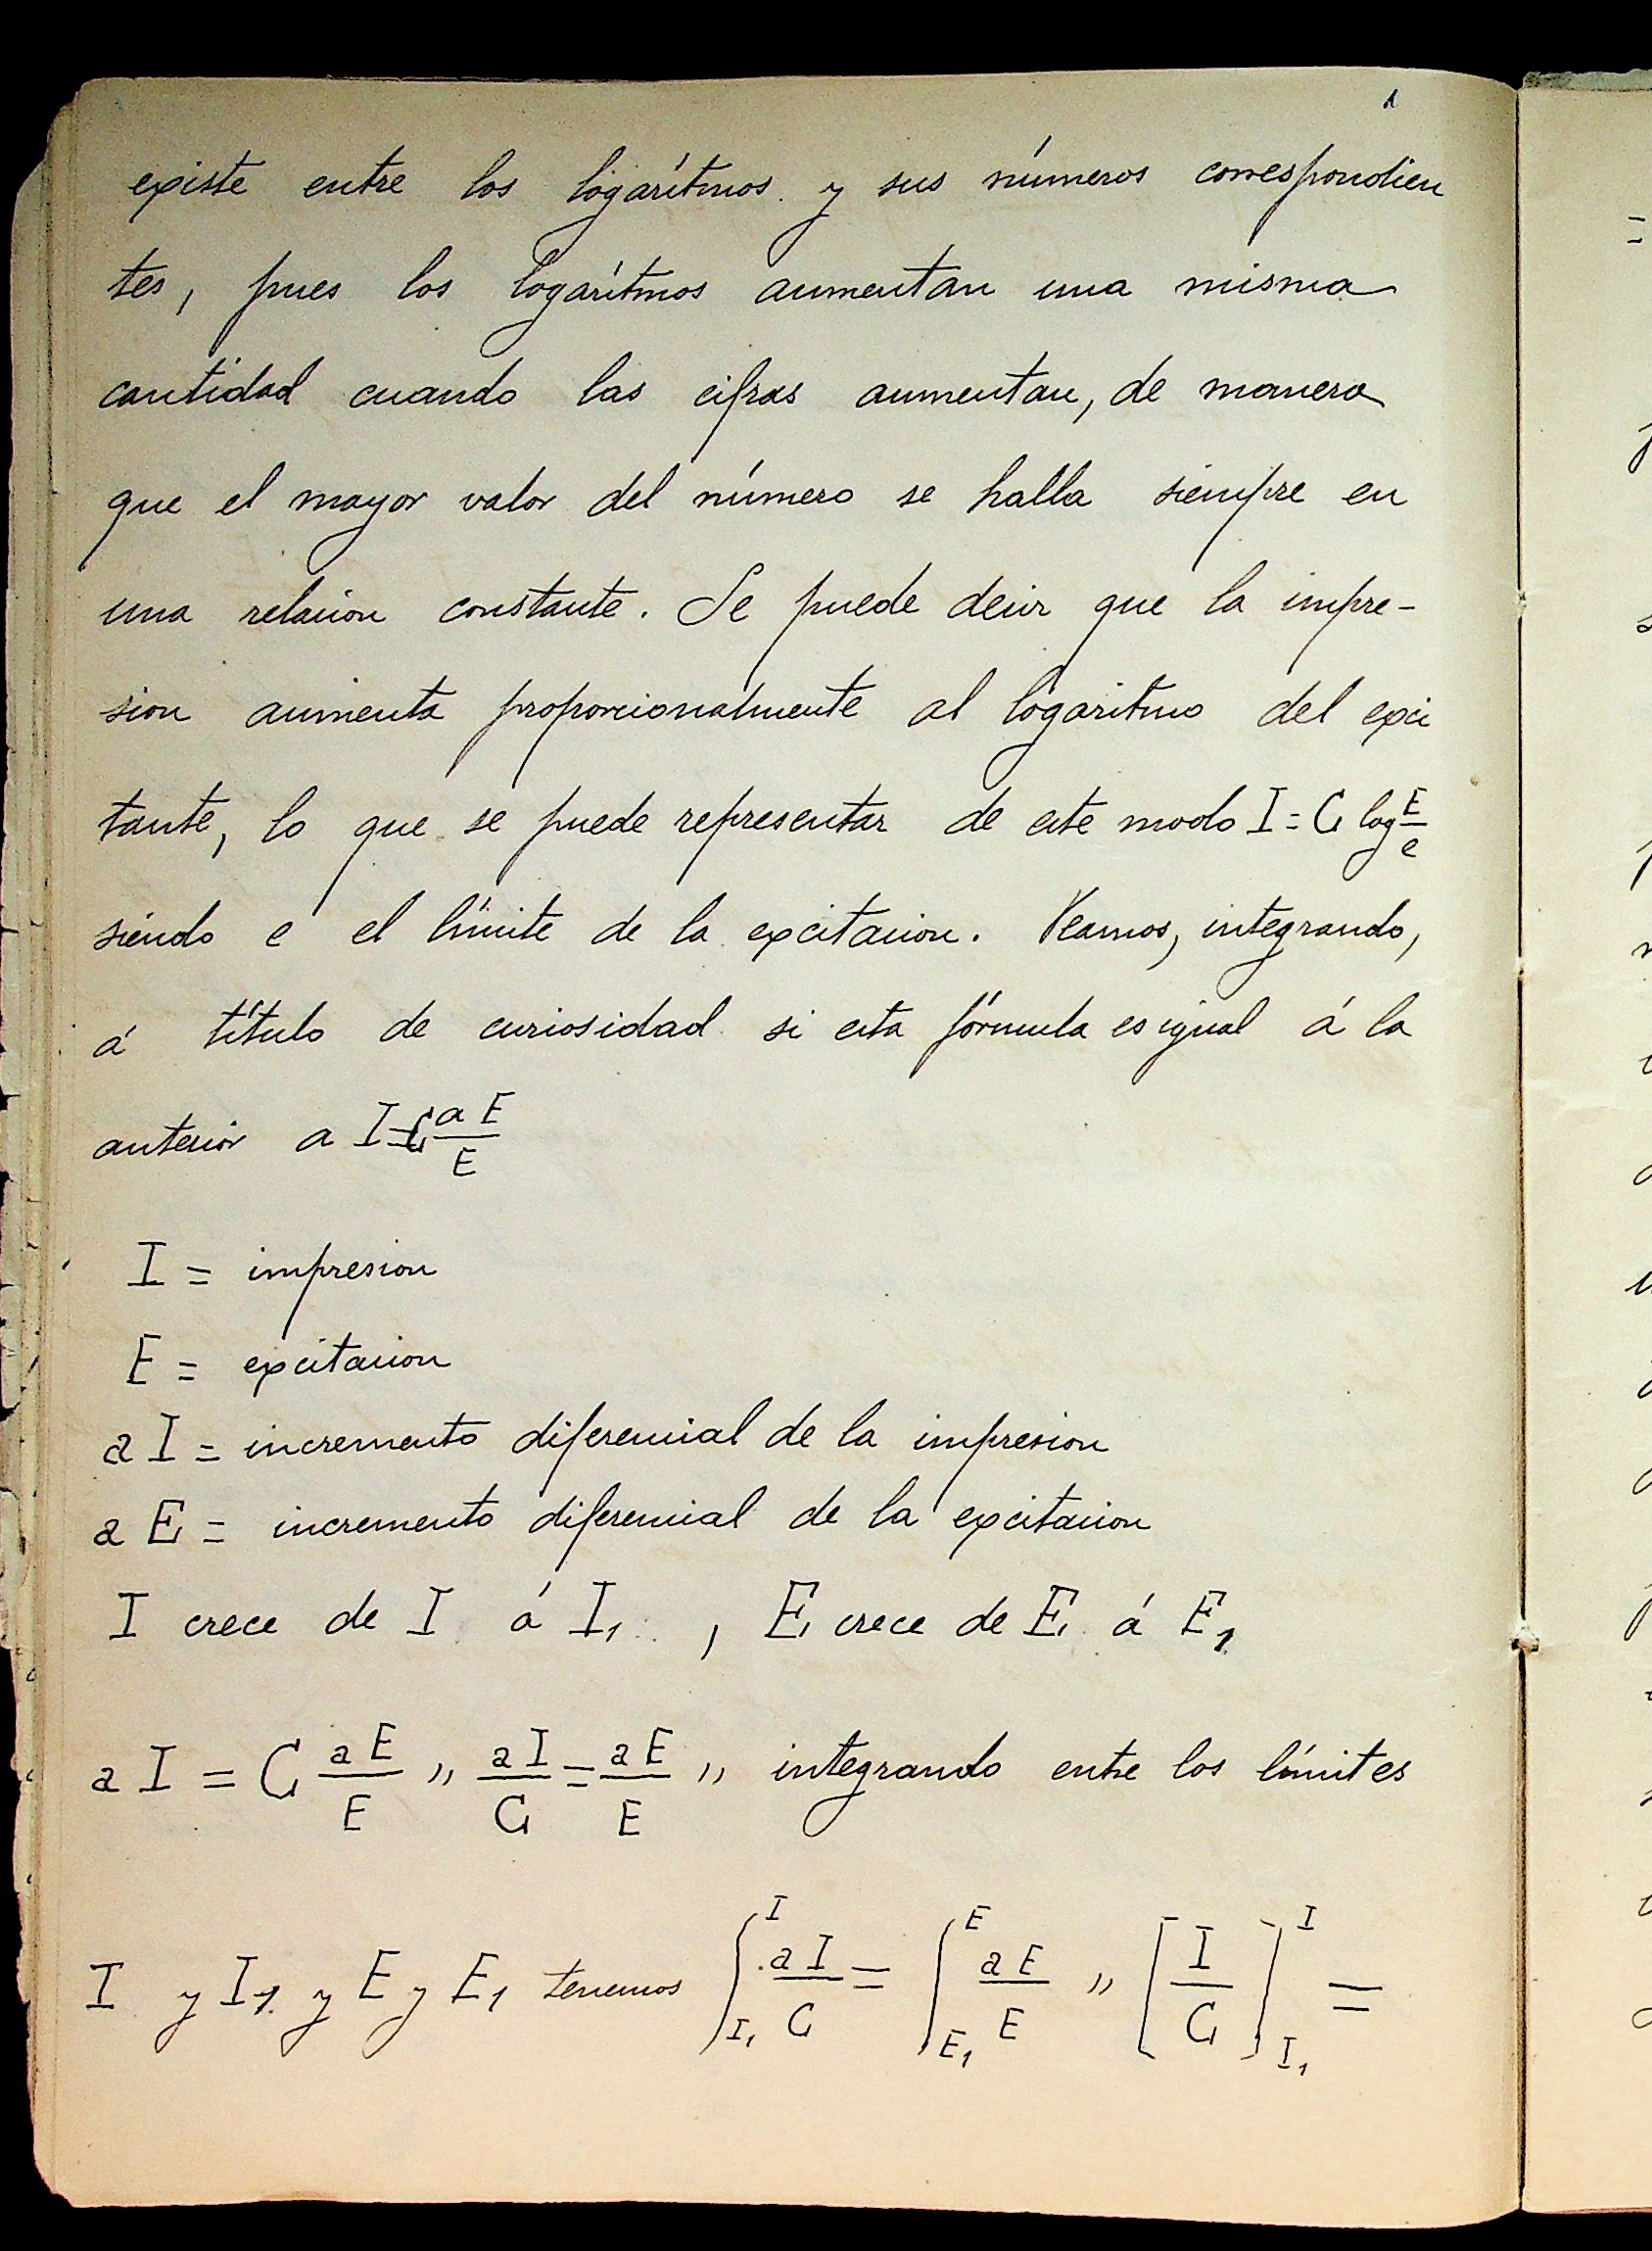 1
existe entre los logarítmos y sus números correspondien
tes, pues los logarítmos aumentan una misma
cantidad cuando las cifras aumentan, de manera
que el mayor valor del número se halla siempre en
una relacion constante. Se puede decir que la impre-
sion aumenta proporcionalmente al logaritmo del exci
tante, lo que se puede representar de este modo I = C log E/e
siendo e el límite de la excitacion. Veamos, integrando,
á título de curiosidad si esta fórmula es igual á la
anterior a I = C a E/E
I = impresion
E = excitacion
a I = incremento diferencial de la impresion
a E = incremento diferencial de la excitacion
I crece de I á I₁ , E crece de E á E₁
a I = C a E/E " a I/C = a E/E " integrando entre los límites
I y I₁ y E y E₁ tenemos ∫_{I₁}^{I} a I/C = ∫_{E₁}^{E} a E/E " [I/C]_{I₁}^{I} =